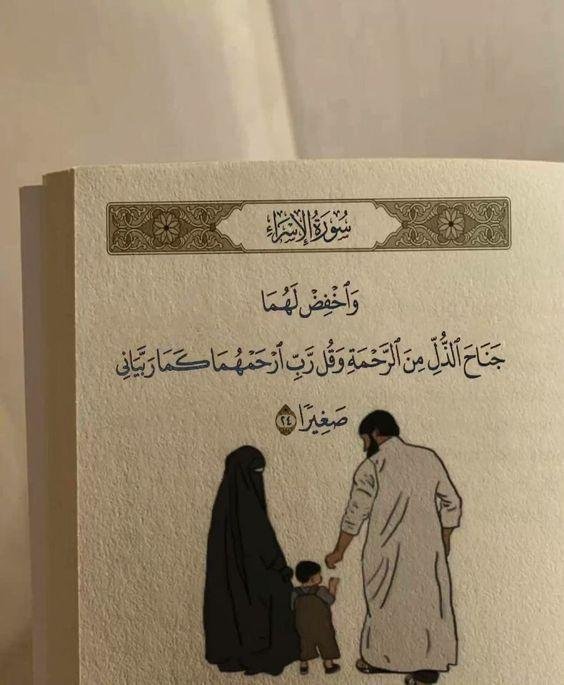 سُورَةُ الإِسْرَاءِ
وَٱخْفِضْ لَهُمَا
جَنَاحَ ٱلذُّلِّ مِنَ ٱلرَّحْمَةِ وَقُل رَّبِّ ٱرْحَمْهُمَا كَمَا رَبَّيَانِي
صَغِيرًا ٢٤